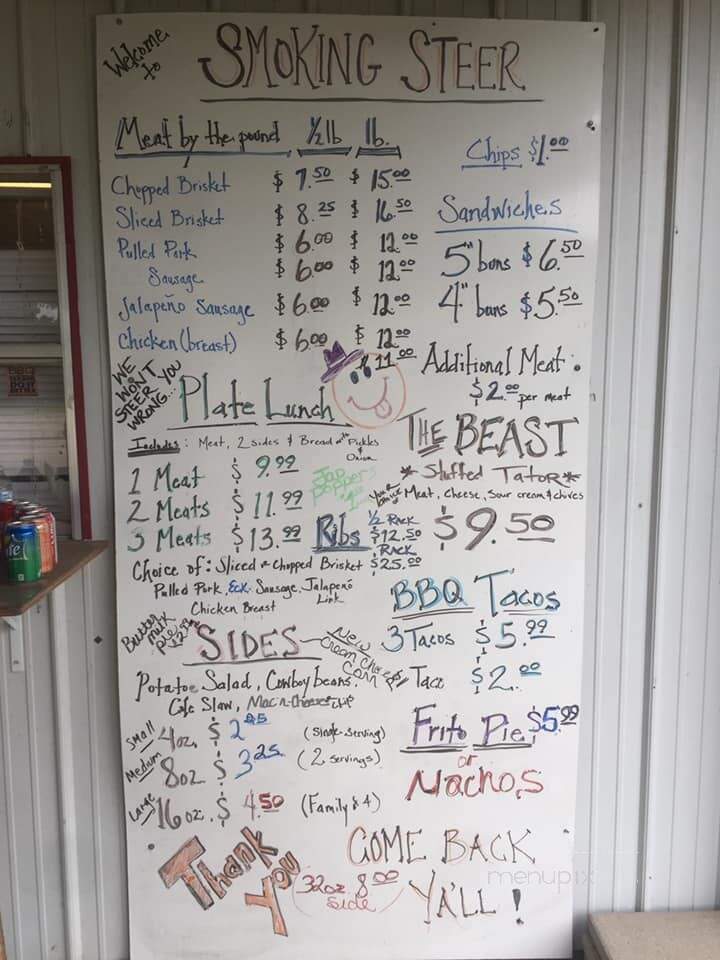 Welcome to
SMOKING STEER
Meat by the pound ½ lb lb.
Chopped Brisket $7.50 $15.00
Sliced Brisket $8.25 $16.50
Pulled Pork $6.00 $12.00
Sausage $6.00 $12.00
Jalapeño Sausage $6.00 $12.00
Chicken (breast) $6.00 $12.00
$11.00
Chips $1.00
Sandwiches
5" buns $6.50
4" buns $5.50
Additional Meat:
$2.00 per meat
WE WON'T STEER YOU WRONG...
Plate Lunch
Includes: Meat, 2 sides & Bread Pickles Onion
1 Meat $9.99
2 Meats $11.99
3 Meats $13.99
Jap Poppers
Ribs ½ Rack $12.50
Rack $25.00
Choice of: Sliced or Chopped Brisket
Pulled Pork, Sausage, Jalapeño Link
Chicken Breast
THE BEAST
*Stuffed Tator*
Your choice Meat, Cheese, Sour cream & chives
$9.50
BBQ Tacos
3 Tacos $5.99
1 Taco $2.00
Butter milk pie
SIDES
New Cream Cheese Corn
Potatoe Salad, Cowboy beans
Cole Slaw, Mac-n-Cheese
Small 4oz. $2 (Single-Serving)
Medium 8oz $3.25 (2 servings)
Large 16oz. $4.50 (Family 4)
Frito Pie $5.99
or
Nachos
Thank You
32oz 8.00 Side
COME BACK
YA'LL!
menupix